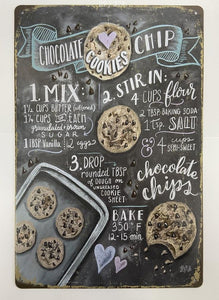 CHOCOLATE CHIP
COOKIES
1. MIX:
1 1/2 CUPS BUTTER (softened)
1 1/4 CUPS EACH
granulated & brown
SUGAR
1 TBSP Vanilla | 2 eggs
2. STIR IN:
4 CUPS flour
2 TSP BAKING SODA
1 tsp SALT
& 4 cups
SEMI-SWEET
chocolate
chips
3. DROP
rounded TBSP
of DOUGH on
ungreased
COOKIE
SHEET
BAKE
350°F
12-15 min.